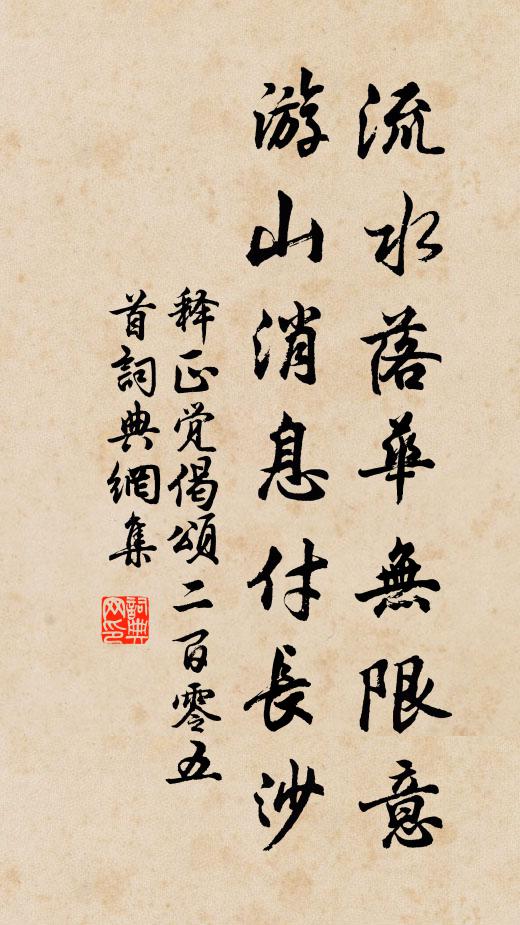 流水落華無限意
游山消息付長沙
释正覺偈頌二百零五
首詞典網集
詞典网印